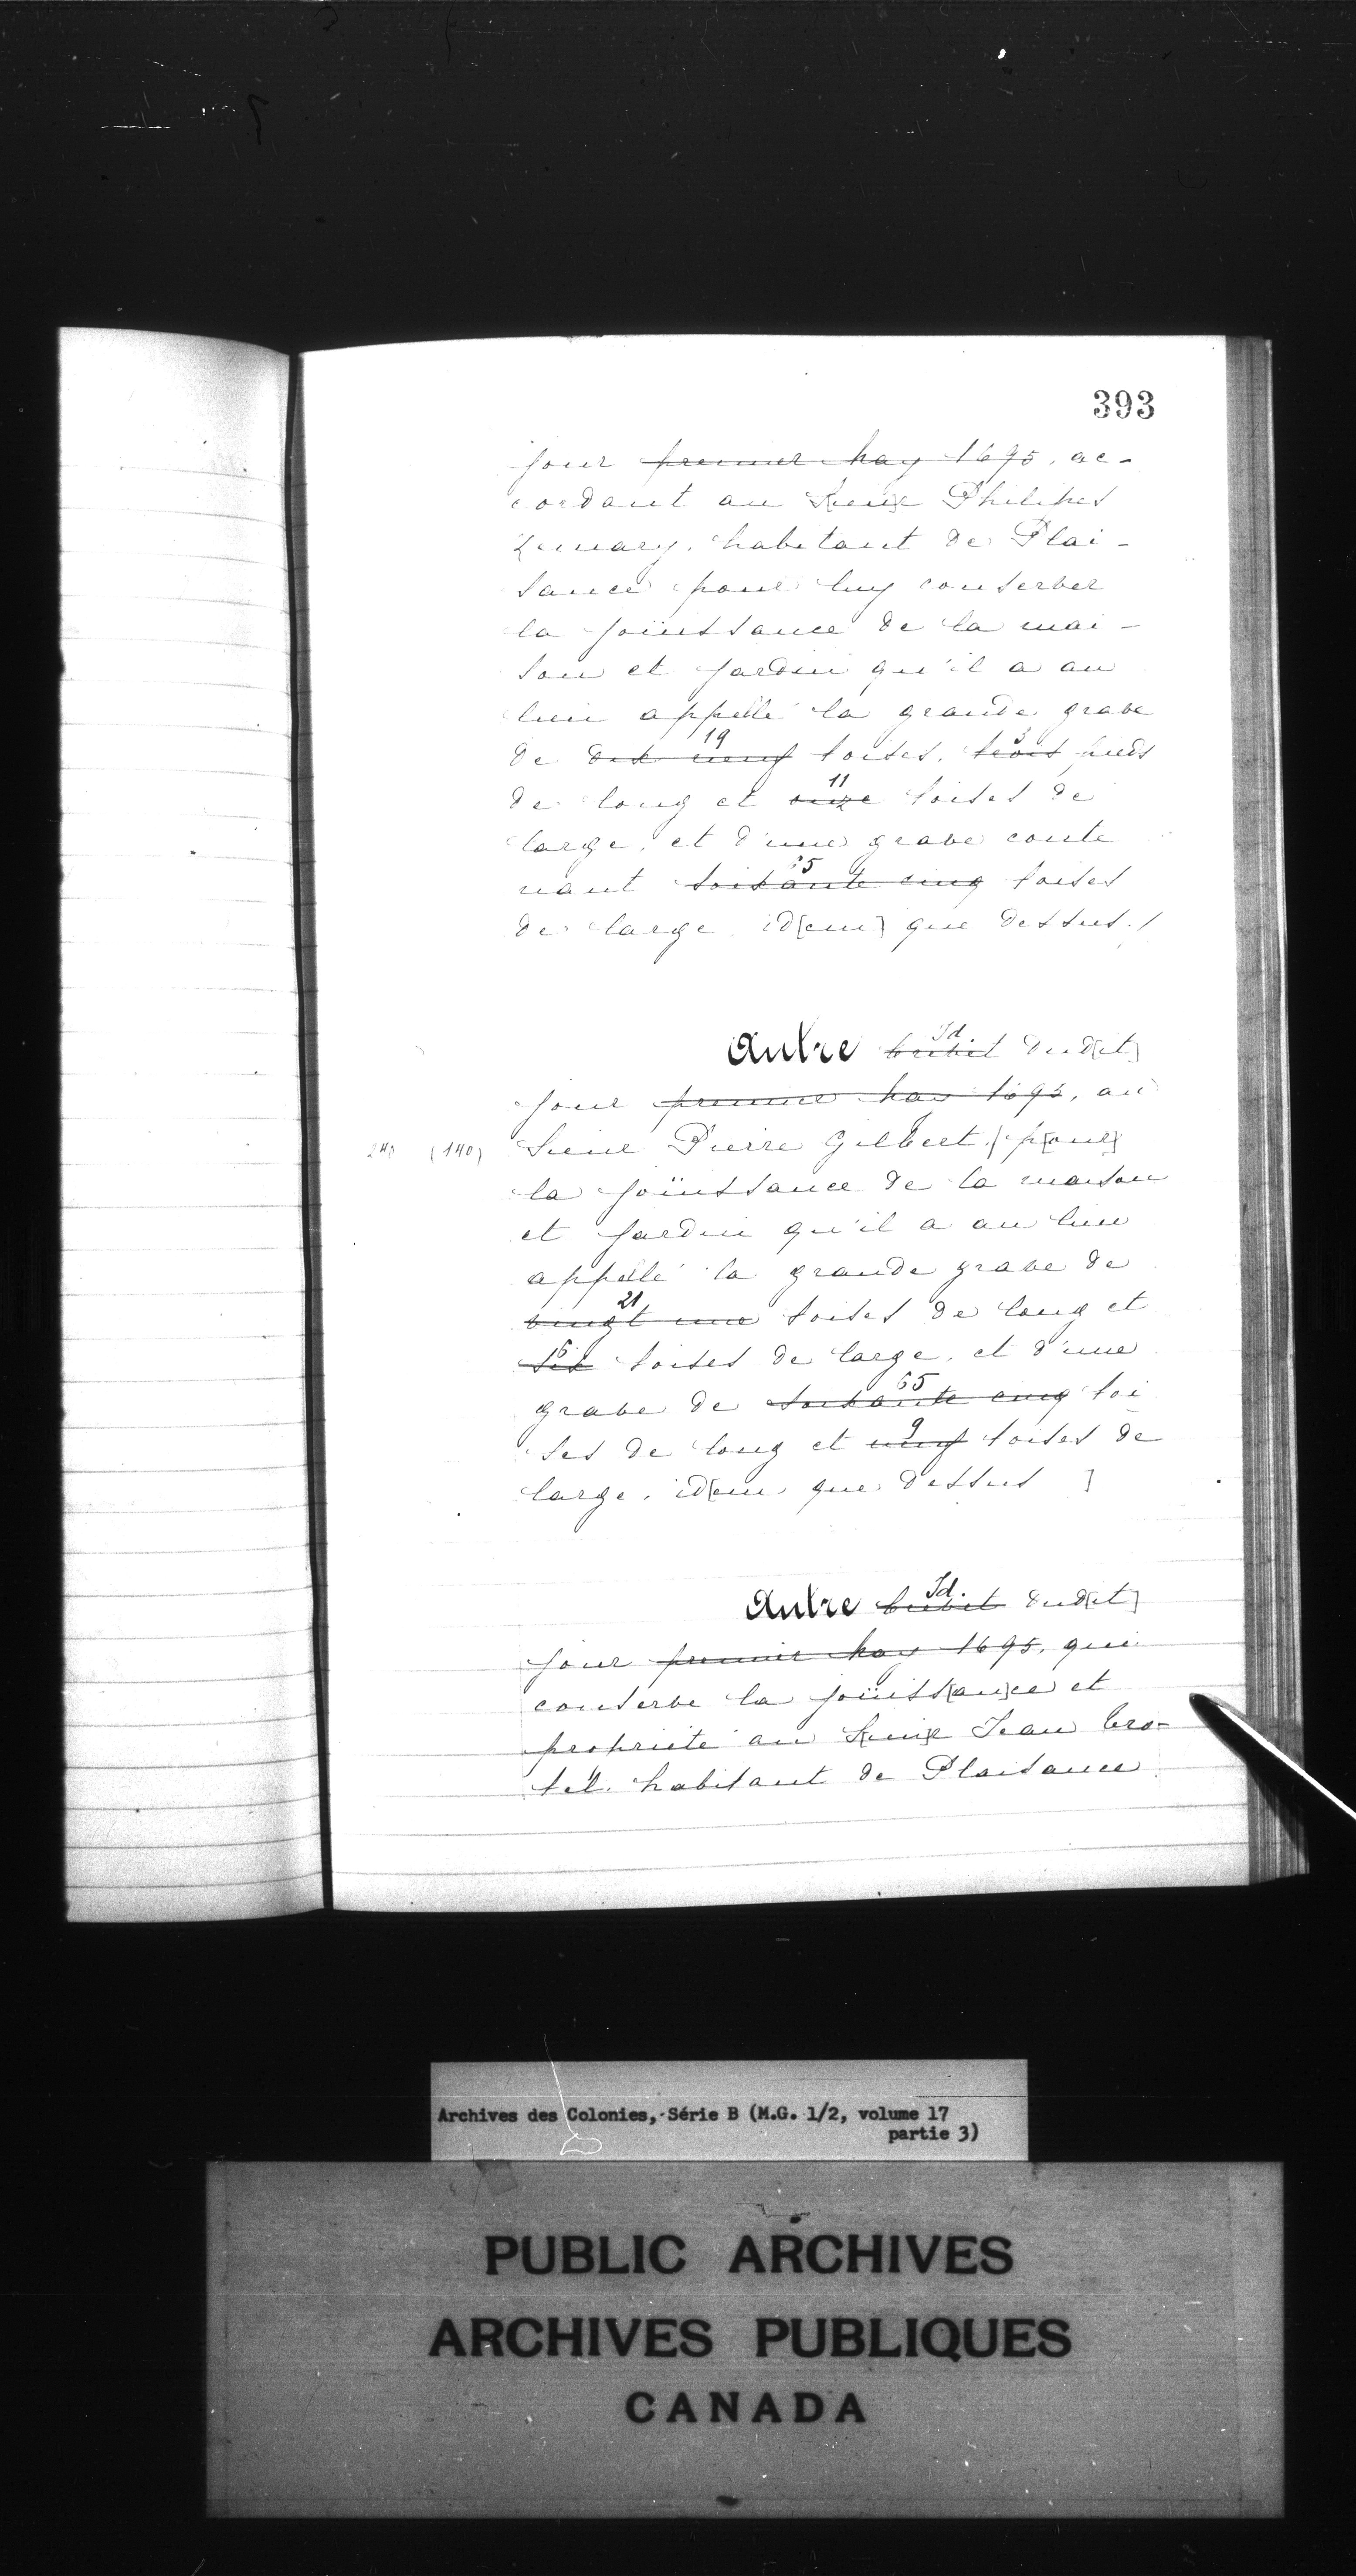 393
jour premier may 1695, ac-
cordant au S[ieu]r Philipes
Zemary, habitant de Plai-
sance pour luy conserver
la joüissance de la mai-
son et jardin qu'il a au
lieu appellé la grande grave
de dix neuf 19 toises, trois 3 pieds
de long et onze 11 toises de
large, et d'une grave conte
nant soixante cinq 65 toises
de large id[em] que dessus./
Autre brevet Id dud[it]
jour premier may 1695, au
240 (140) Sieur Pierre Gilbert, p[our]
la joüissance de la maison
et jardin qu'il a au lieu
appellé la grande grave de
vingt une 21 toises de long et
six 6 toises de large, et d'une
grave de soixante cinq 65 toi
ses de long et neuf 9 toises de
large, id[em que dessus ]
Autre brevet Id. dud[it]
jour premier may 1695, qui
conserve la joüiss[an]ce et
propriété au S[ieu]r Jean Cro-
tel. habitant de Plaisance
Archives des Colonies, Série B (M.G. 1/2, volume 17
partie 3)
PUBLIC ARCHIVES
ARCHIVES PUBLIQUES
CANADA